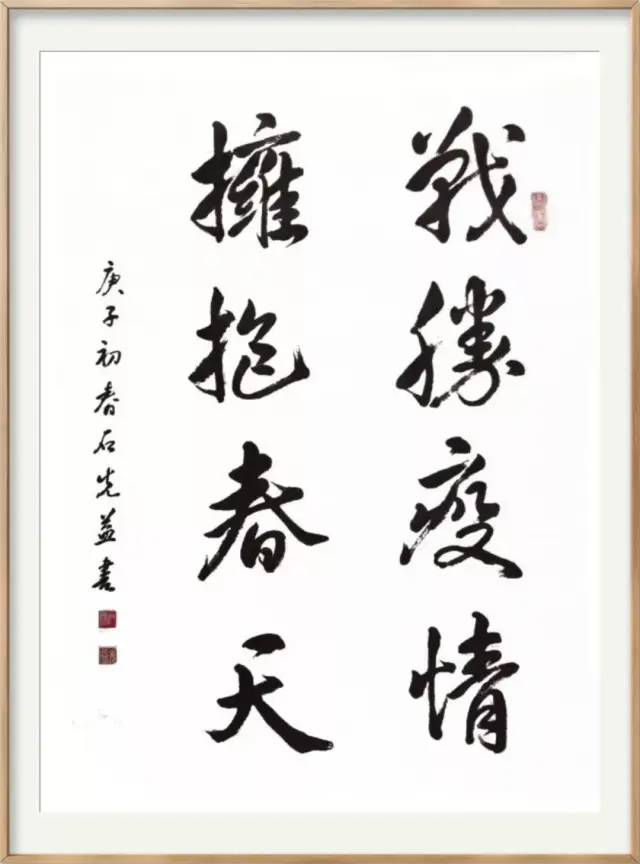 戰勝疫情
擁抱春天
庚子初春石先益書